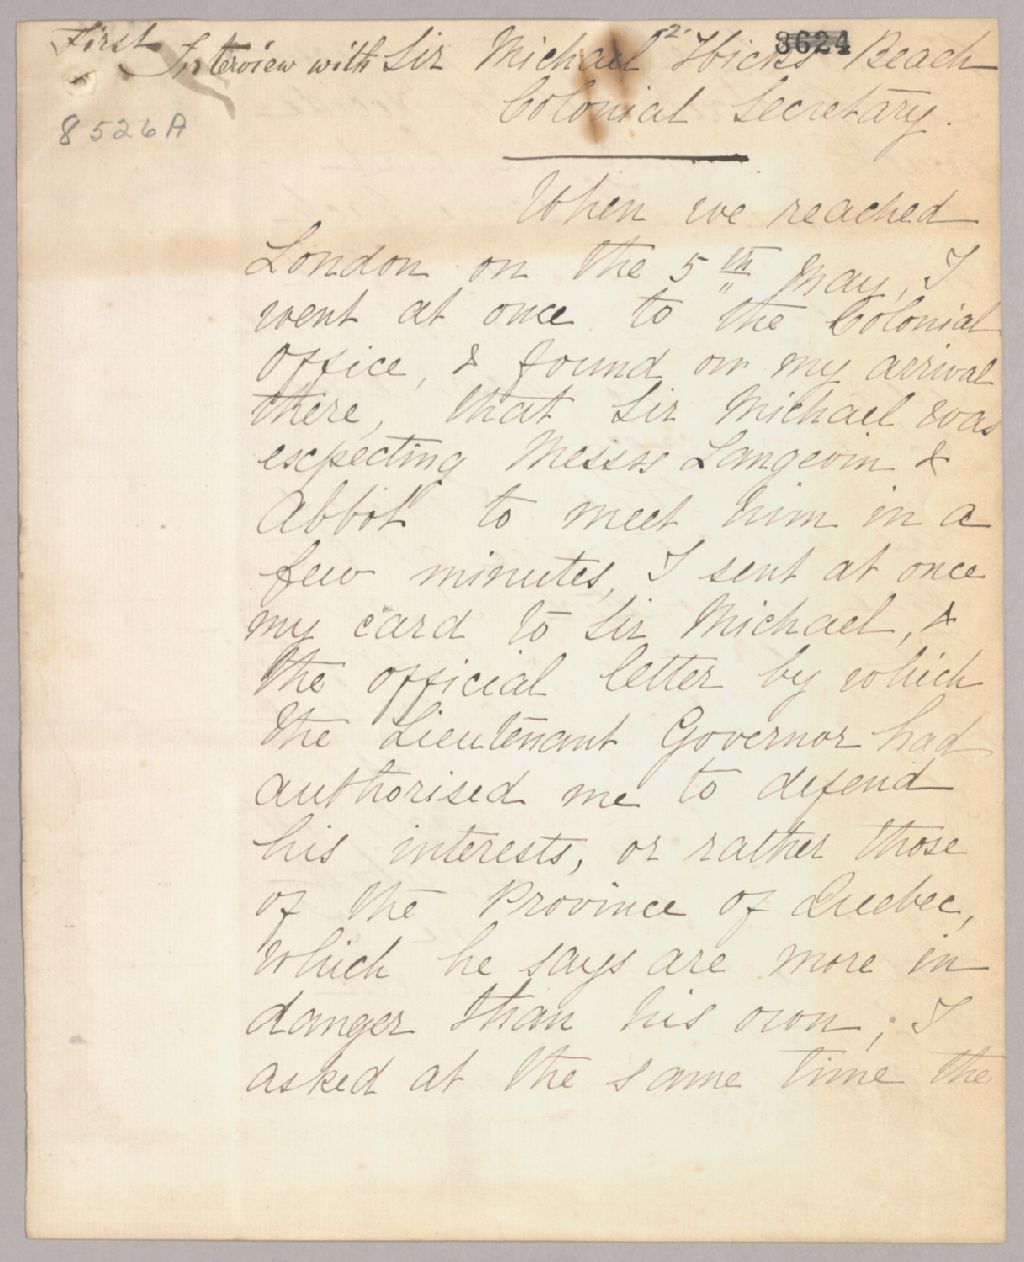 First
Interview with Sir Michael Hicks Beach
2.
8624
Colonial Secretary.
8526A
When we reached
London on the 5th May, I
went at once to "the Colonial
Office, & found on my arrival
there, that Sir Michael was
expecting Messrs Langevin &
Abbott to meet him in a
few minutes, I sent at once
my card to Sir Michael, &
the official letter by which
the Lieutenant Governor had
authorised me to defend
his interests, or rather those
of the Province of Quebec,
which he says are more in
danger than his own; I
asked at the same time the